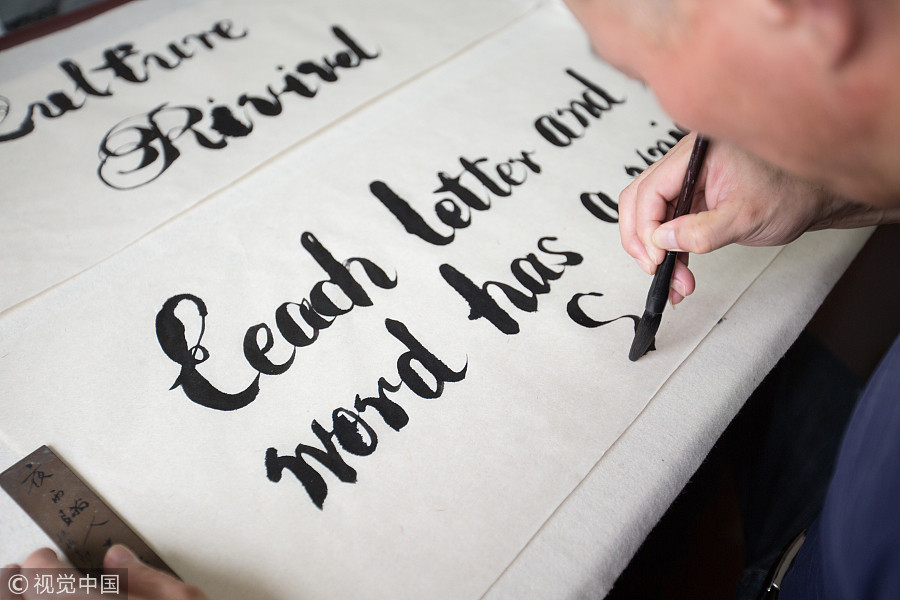 Culture
Rivival
Each letter and
word has a
夜雨
人
© 视觉中国